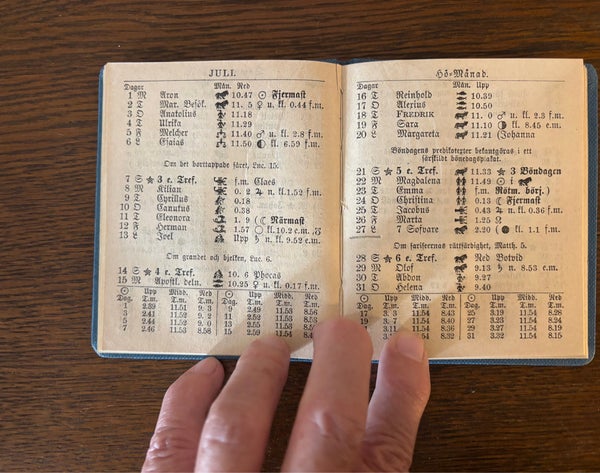 JULI.
Dagar Mån. Ned
1 M Aron 10.47 ☉ Fjermast
2 T Mar. Besök. 11. 5 ♀ u. kl. 0.44 f.m.
3 O Anatolius 11.18
4 T Ulrika 11.29
5 F Melcher 11.40 ♂ u. kl. 2.8 f.m.
6 L Esaias 11.50 kl. 6.59 f.m.
Om det borttappade fåret, Luc. 15.
7 S 3 e. Tref. f.m. Claes
8 M Kilian 0. 2 kl. 1.52 f.m.
9 T Cyrillus 0.18
10 O Canutus 0.38
11 T Eleonora 1. 9 Närmast
12 F Herman 1.57 kl. 10.2 e.m.
13 L Joel Upp ♄ n. 9.52 e.m.
Om grandet och bjelken, Luc. 6.
14 S 4 e. Tref. 10. 6 Phocas
15 M Apostl. deln. 10.25 ♀ u. kl. 0.17 f.m.
☉ Upp Midd. Ned ☉ Upp Midd. Ned
Dag. T.m. T.m. T.m. Dag. T.m. T.m. T.m.
1 2.39 11.51 9. 3 9 2.49 11.53 8.56
3 2.41 11.52 9. 2 11 2.52 11.53 8.53
5 2.44 11.52 9. 0 13
7 2.46 11.53 8.58 15 2.59 11.54
Hö-Månad.
Dagar Mån. Upp
16 T Reinhold 10.39
17 O Alexius 10.50
18 T FREDRIK 11. 0 ♂ u. kl. 2.3 f.m.
19 F Sara 11.10 kl. 8.45 e.m.
20 L Margareta 11.21 (Johanna
Böndagens predikotexter bekantgöras i ett
särskildt böndagsplakat.
21 S 5 e. Tref. 11.33 3 Böndagen
22 M Magdalena 11.49 ☉ i
23 T Emma f.m. Rötm. börj.)
24 O Christina 0.13 Fjermast
25 T Jacobus 0.43 ♃ u. kl. 0.36 f.m.
26 F Marta 1.25
27 L 7 Sofvare 2.20 kl. 1.1 f.m.
Om fariseernas rättfärdighet, Matth. 5.
28 S 6 e. Tref. Ned Botvid
29 M Olof 9.13 ♄ n. 8.53 e.m.
30 T Abdon 9.27
31 O Helena 9.40
☉ Upp Midd. Ned ☉ Upp Midd. Ned
Dag. T.m. T.m. T.m. Dag. T.m. T.m. T.m.
17 3. 3 11.54 8.43 25 3.19 11.54 8.28
19 3. 7 11.54 8.40 27 3.23 11.54 8.24
3.11 11.54 8.36 29 3.27 11.54 8.19
11.54 8.32 31 3.32 11.54 8.15